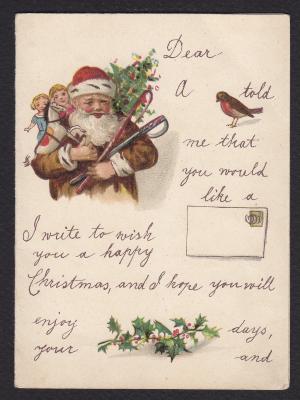 Dear
A told
me that
you would
like a
I write to wish
you a happy
Christmas, and I hope you will
enjoy days,
your and